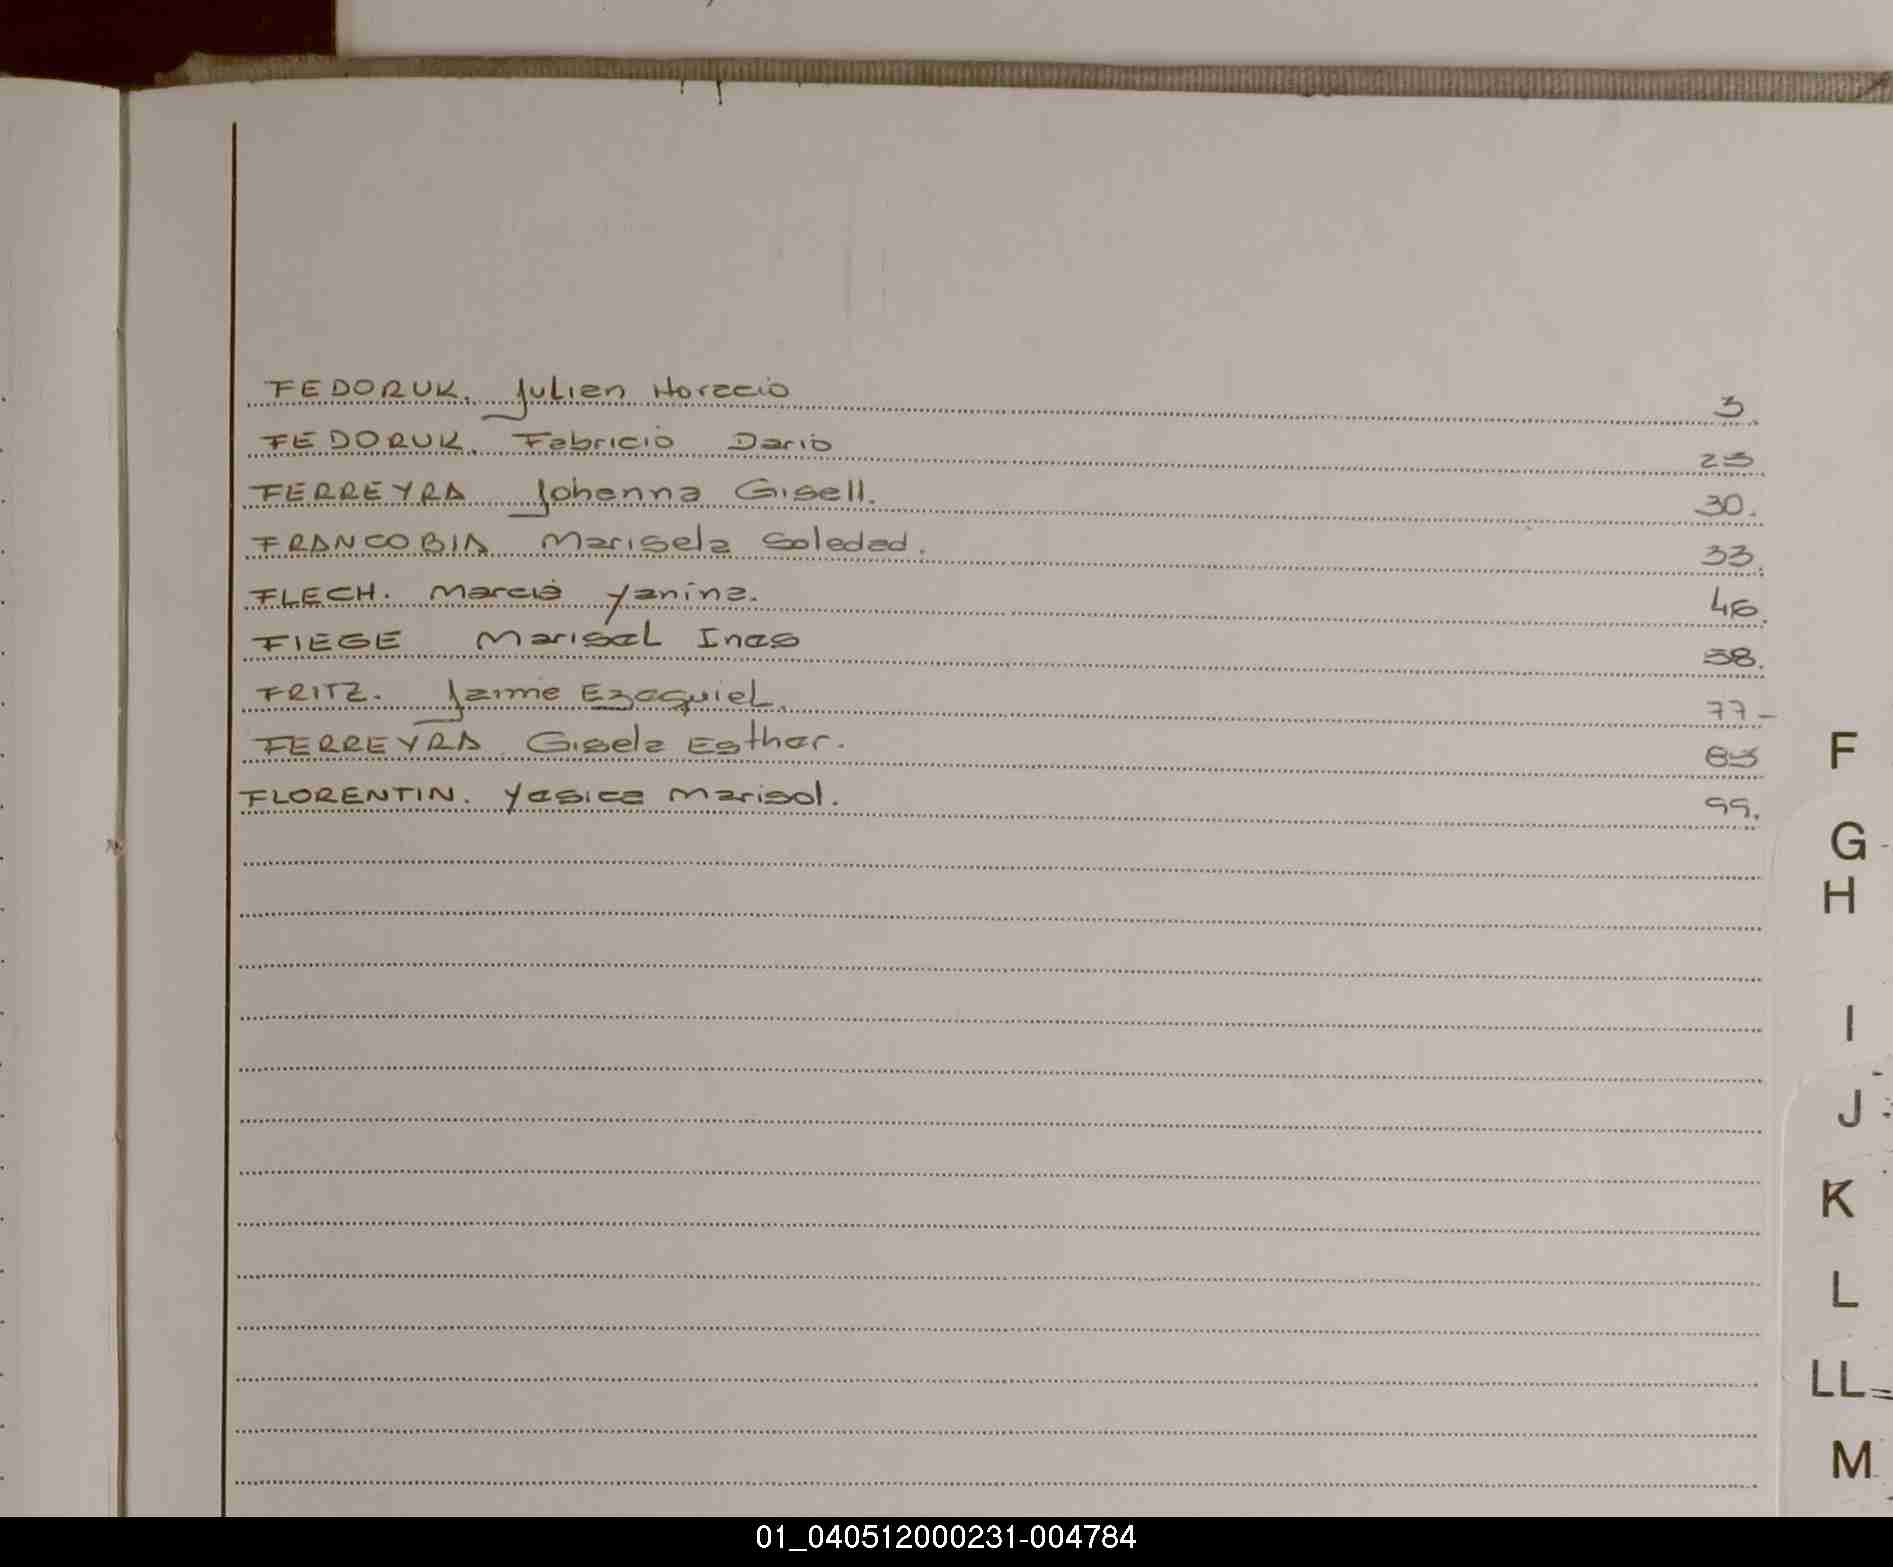 FEDORUK. Julian Horacio 3.
FEDORUK. Fabricio Dario 23
FERREYRA Johanna Gisell. 30.
FRANCOBIA Marisela Soledad. 33.
FLECH. Marcia Yanina. 46.
FIEGE Marisel Ines 58.
FRITZ. Jaime Ezequiel. 77-
FERREYRA Gisela Esther. 83
FLORENTIN. Yesica Marisol. 99.
F
G
H
I
J
K
L
LL
M
01_040512000231-004784